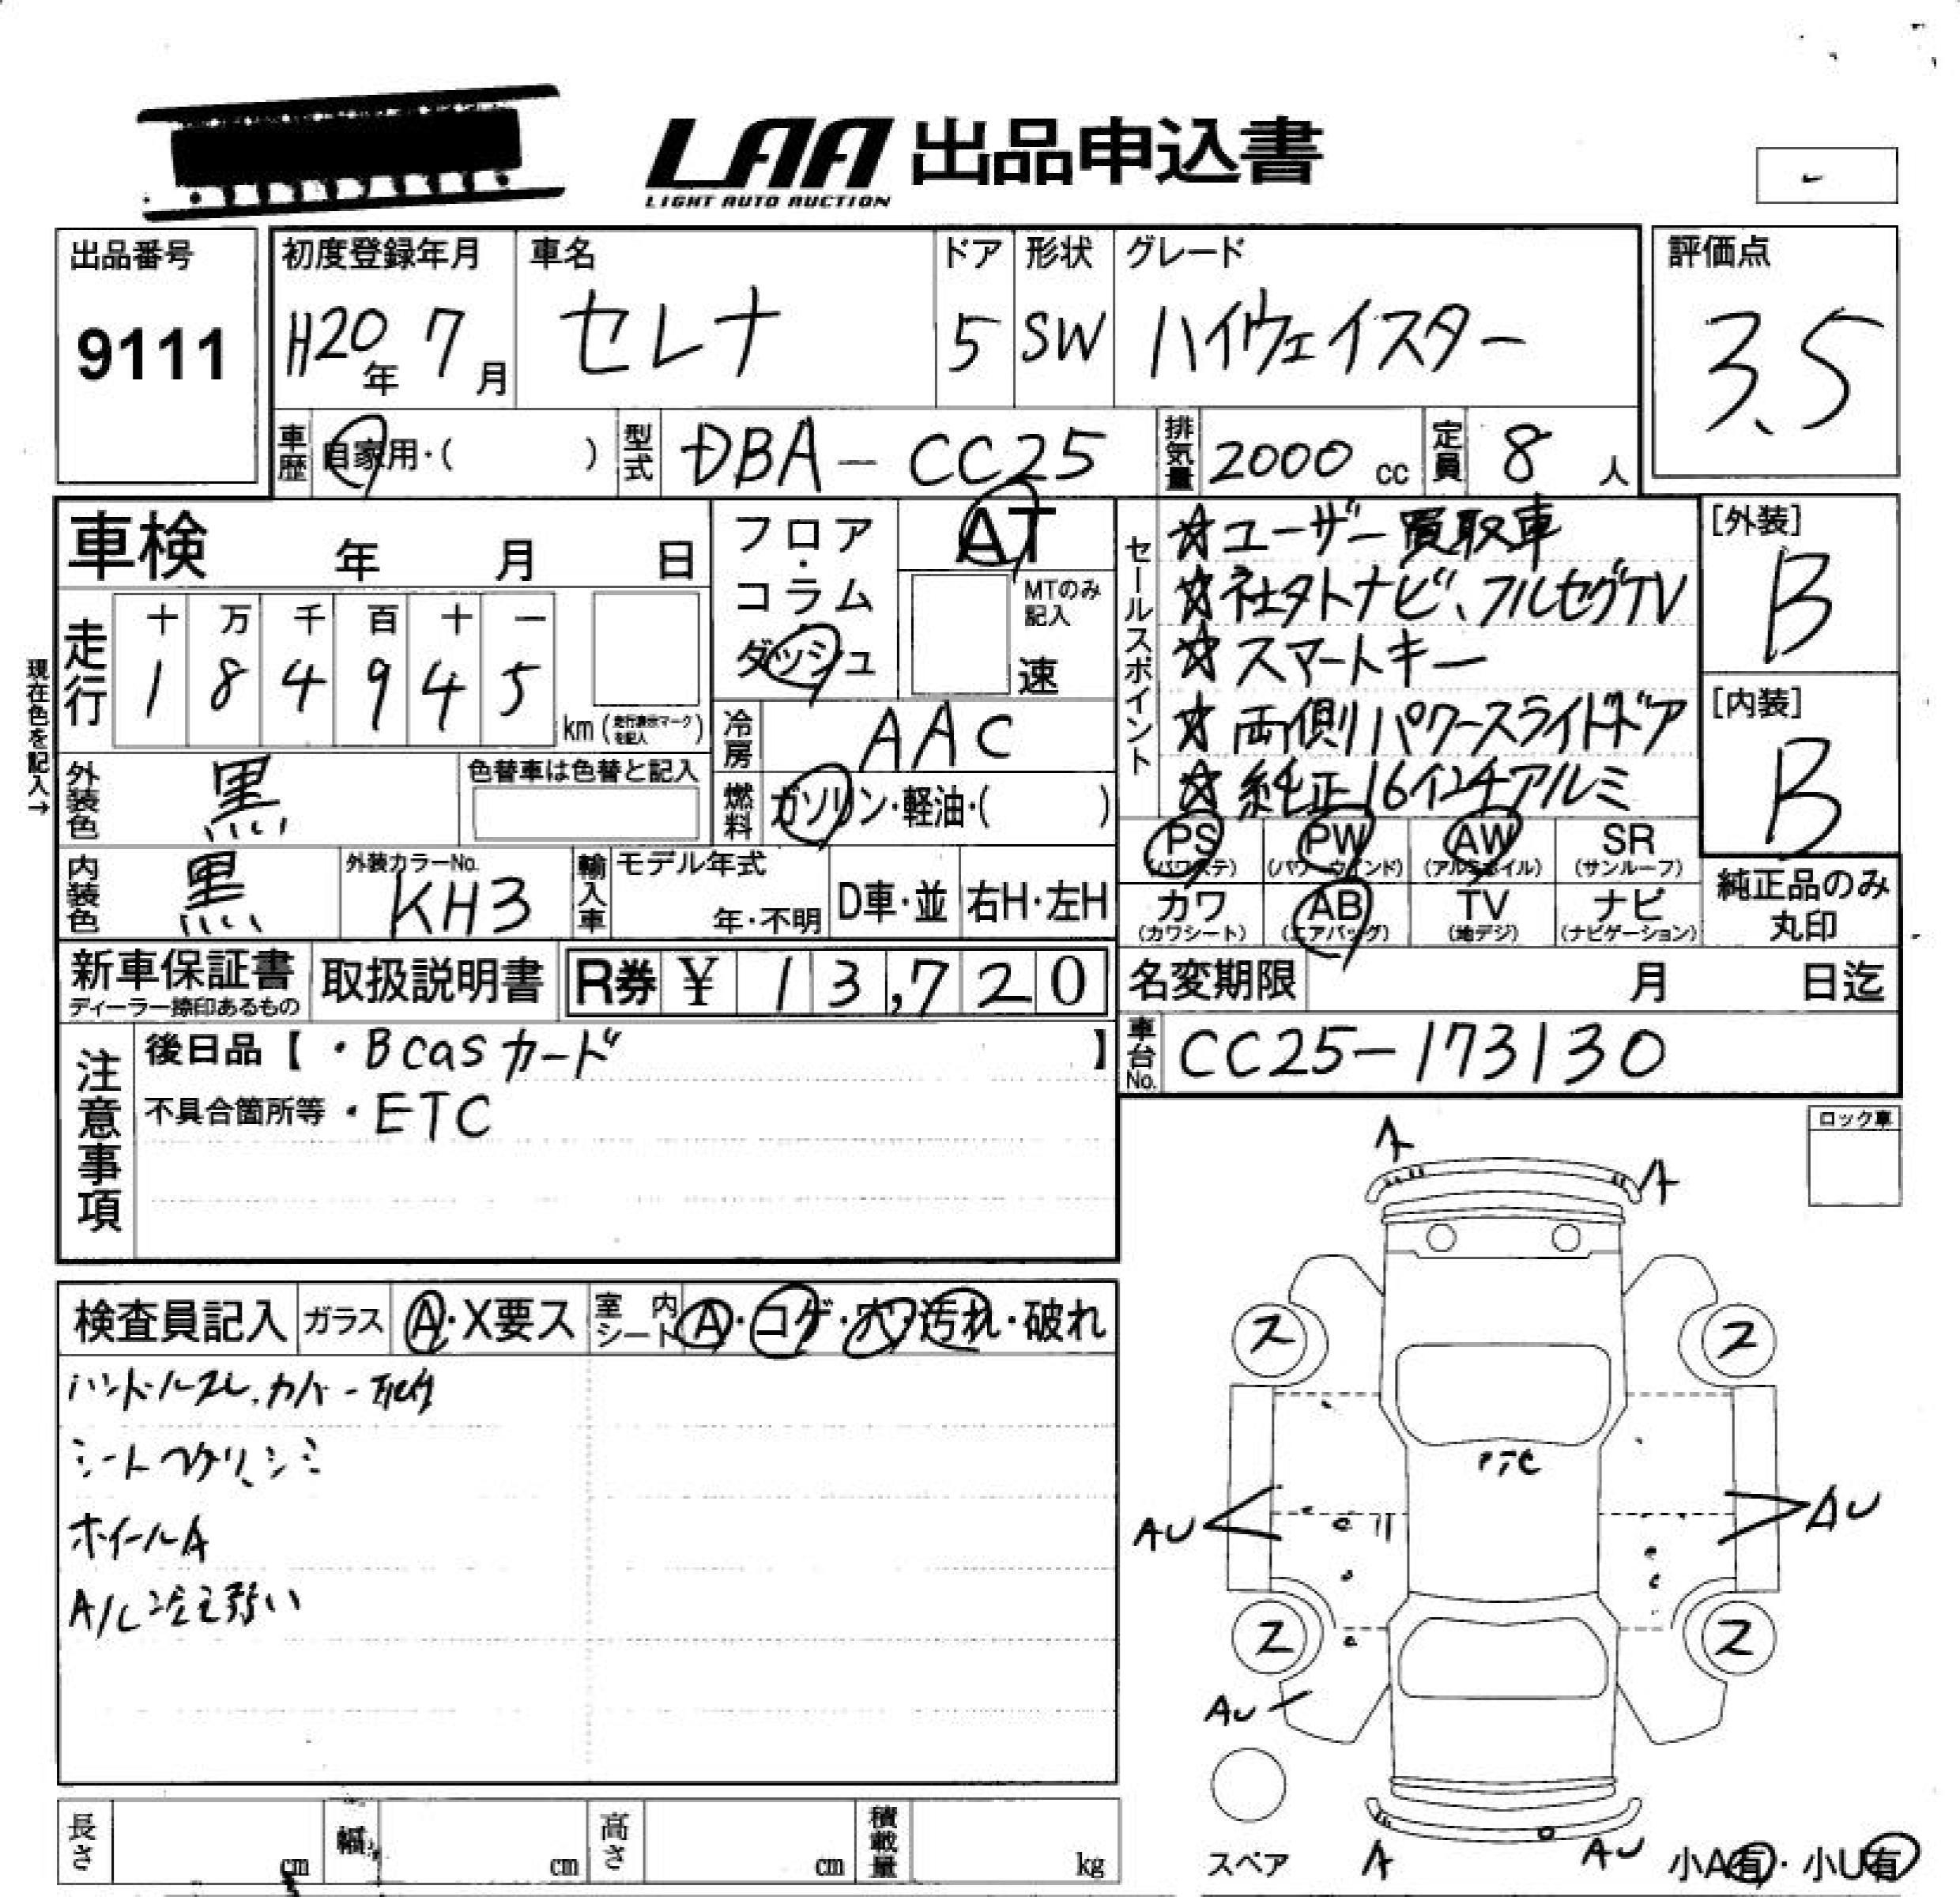 LAA 出品申込書
LIGHT AUTO AUCTION
出品番号
9111
初度登録年月
H20年 7月
車名
セレナ
ドア
5
形状
SW
グレード
ハイウェイスター
評価点
3.5
車歴 自家用・( )
型式 DBA-CC25
排気量 2000 cc
定員 8 人
車検 年 月 日
フロア・コラム ダッシュ
AT
MTのみ記入
速
セールスポイント
☆ユーザー買取車
☆社外ナビ、フルセグTV
☆スマートキー
☆両側パワースライドドア
☆純正16インチアルミ
[外装]
B
[内装]
B
現在色を記入→
走行
十 万 千 百 十 一
1 8 4 9 4 5
km(走行表示マークを記入)
冷房 AAC
外装色 黒
色替車は色替と記入
燃料 ガソリン・軽油・( )
PS (パワステ)
PW (パワーウインド)
AW (アルミホイル)
SR (サンルーフ)
カワ (カワシート)
AB (エアバッグ)
TV (地デジ)
ナビ (ナビゲーション)
純正品のみ
丸印
内装色 黒
外装カラーNo.
KH3
輸入車
モデル年式
年・不明
D車・並
右H・左H
新車保証書
ディーラー捺印あるもの
取扱説明書
R券 ¥ 13,720
名変期限 月 日迄
車台No. CC25-173130
注意事項
後日品【・Bcasカード 】
不具合箇所等・ETC
ロック車
検査員記入 ガラス A・X要ス
室内シート A・コゲ・穴・汚れ・破れ
ハンドルスレ、カバー取付
シートメクリ、シミ
ホイールA
A/C冷え弱い
A
A
ス
ス
AU
AU
ス
ス
AU
スペア
A
AU
小A有・小U有
長さ cm
幅 cm
高さ cm
積載量 kg